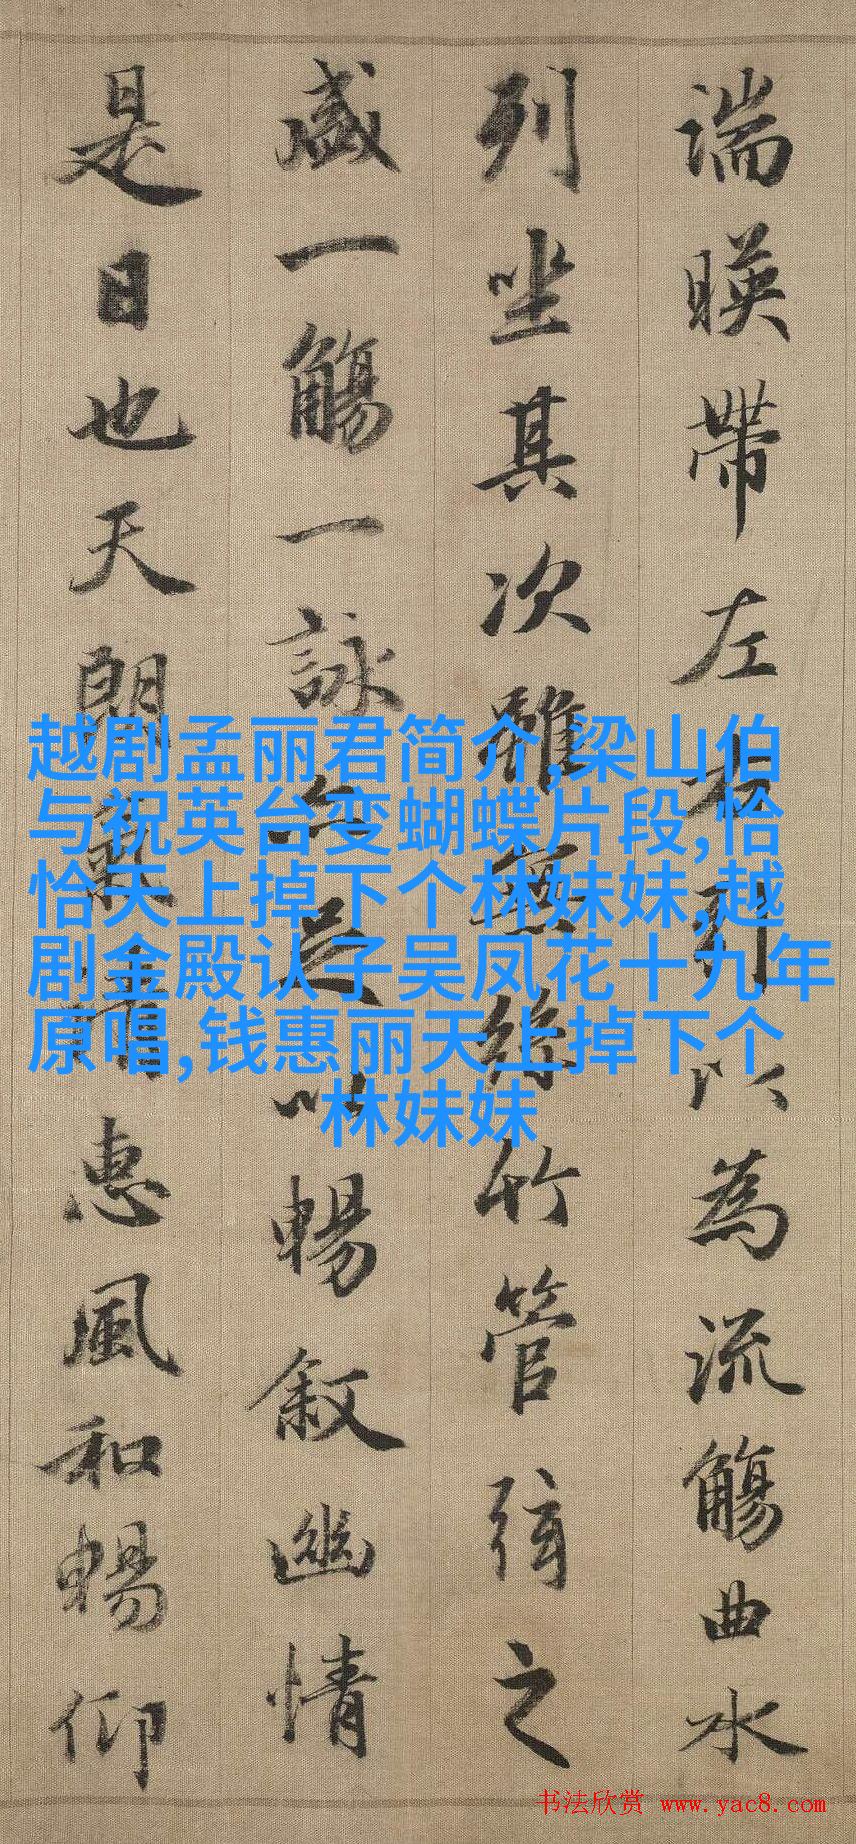 湍暎帶左右引以為流觴曲水
列坐其次雖無絲竹管弦之
盛一觴一詠亦足以暢叙幽情
是日也天朗氣清惠風和暢仰
越剧孟丽君简介,梁山伯
与祝英台变蝴蝶片段,恰
恰天上掉下个林妹妹,越
剧金殿认子吴凤花十九年
原唱,钱惠丽天上掉下个
林妹妹
书法欣赏 www.yac8.com